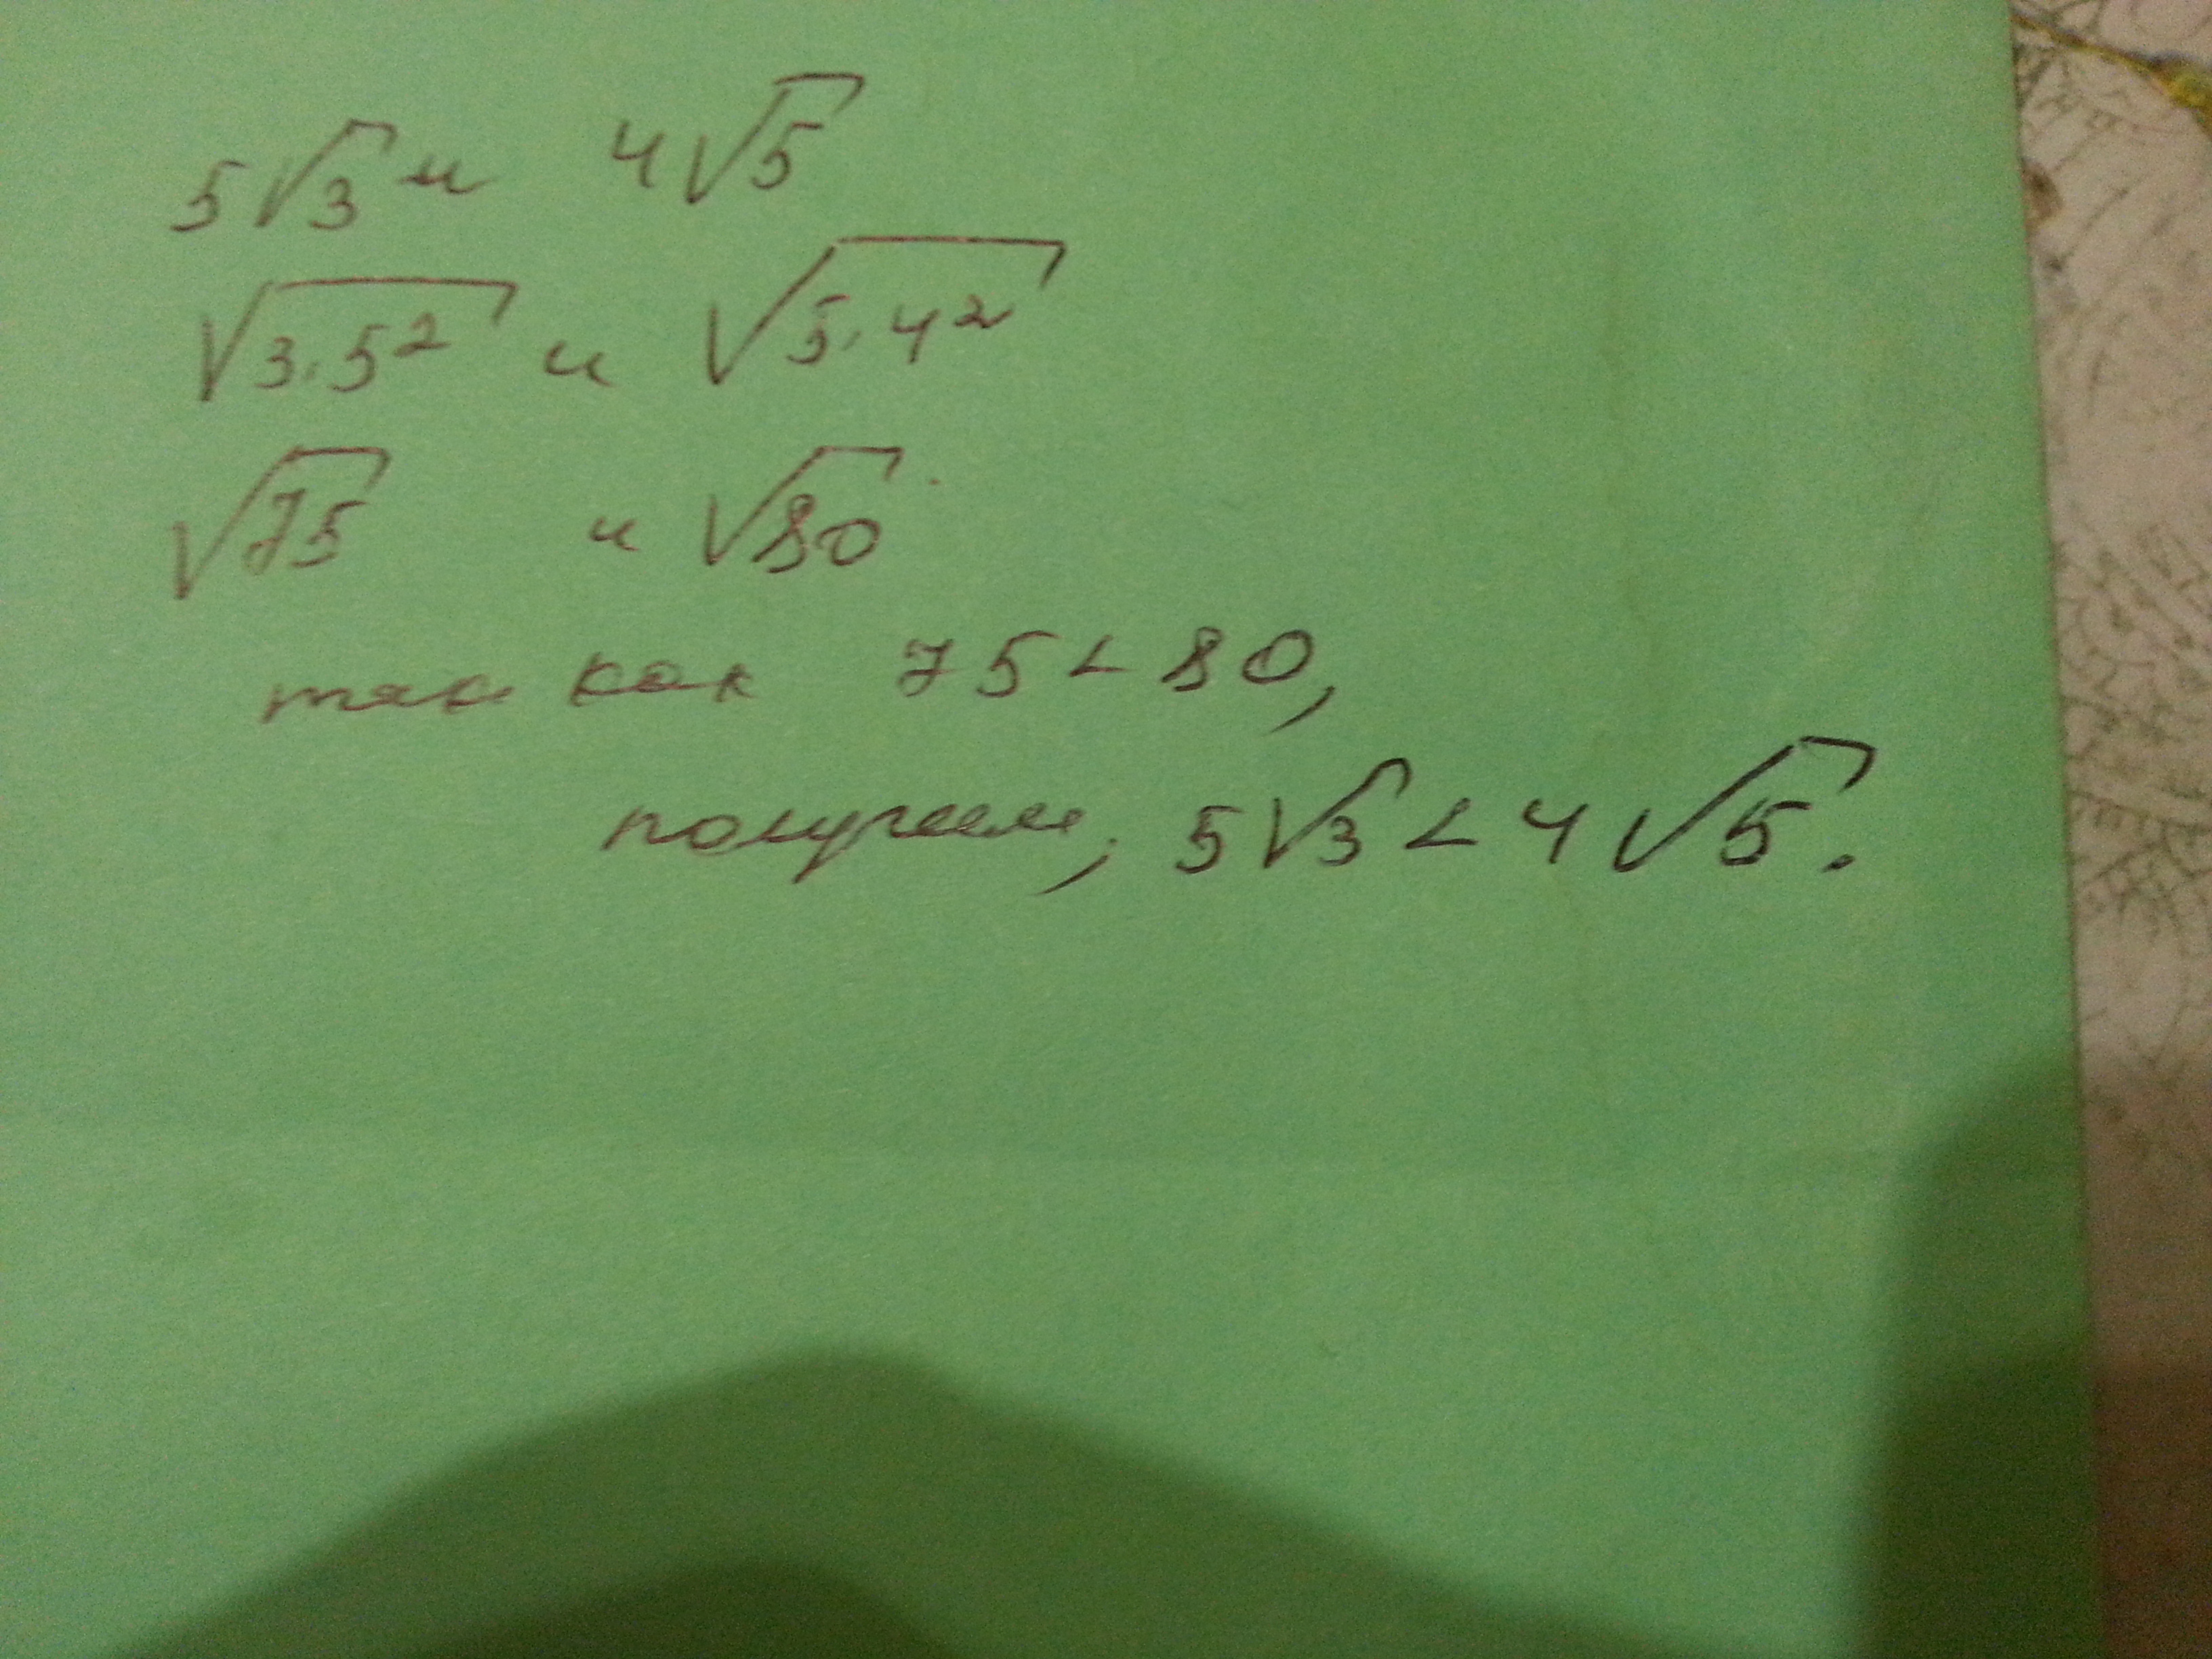 5√3 и 4√5
√3·5² и √5·4²
√75 и √80
так как 75 < 80,
получаем, 5√3 < 4√5.